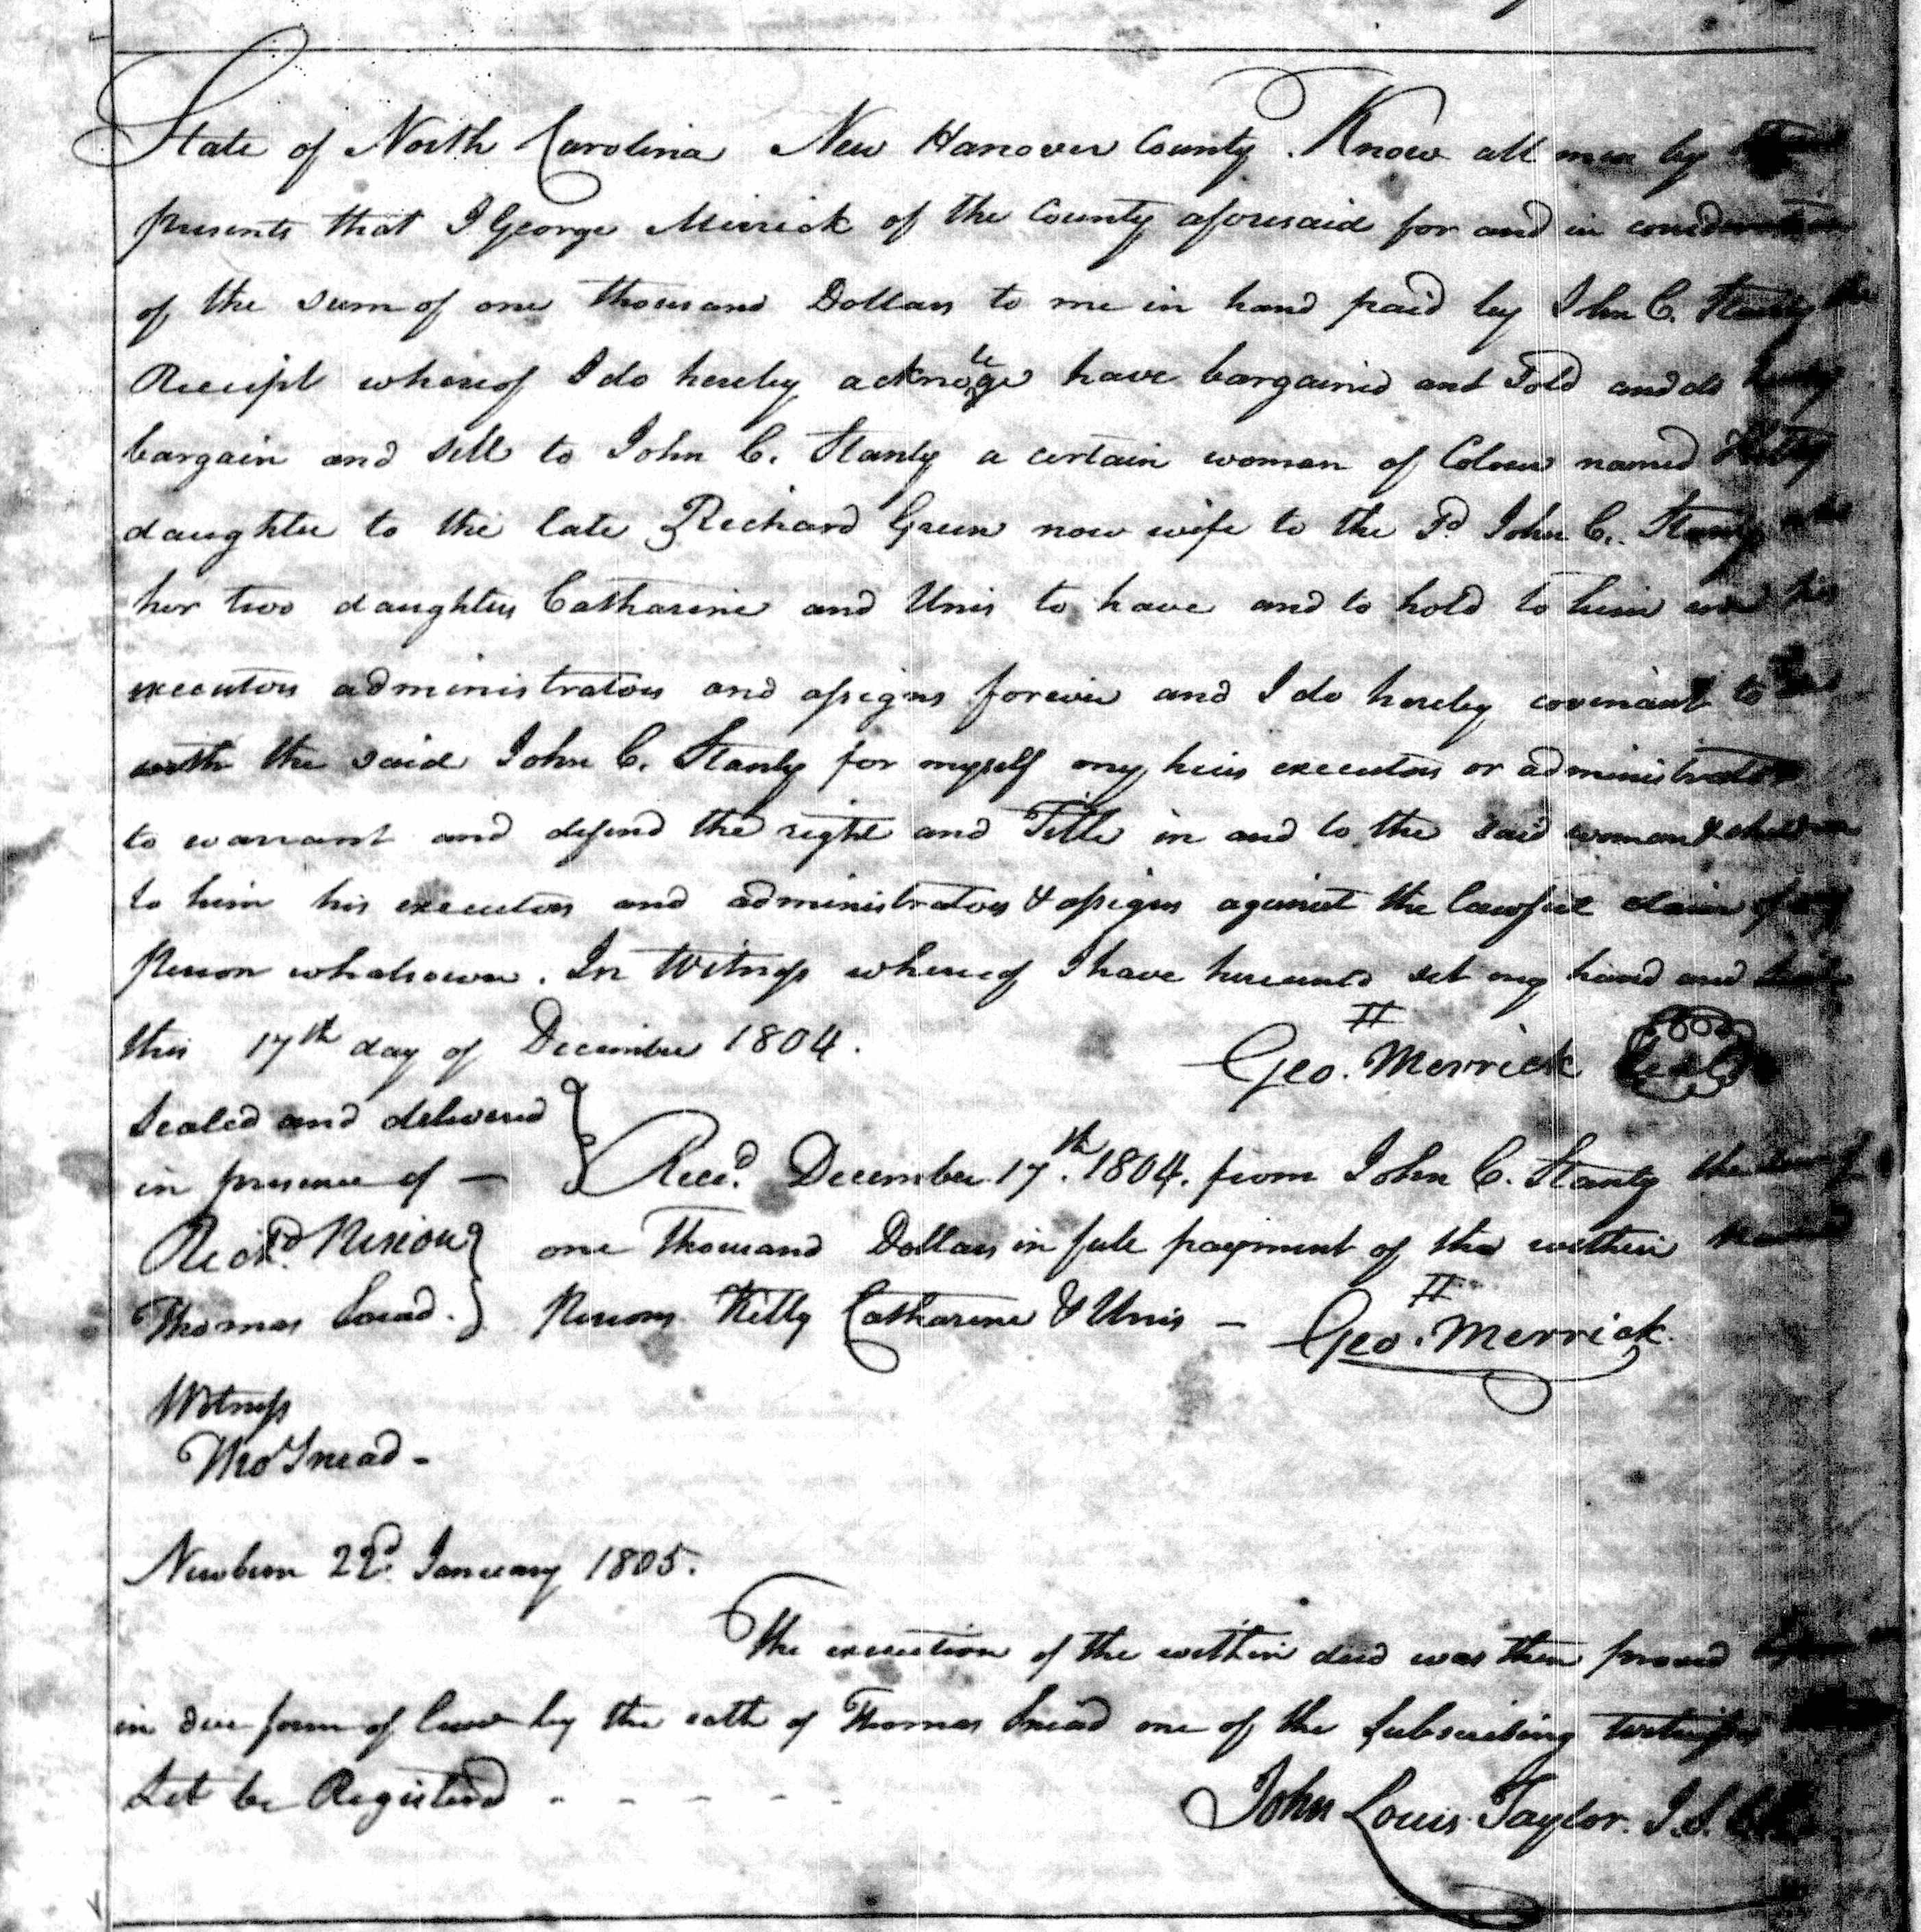 State of North Carolina New Hanover County. Know all men by
presents that I George Merrick of the County aforesaid for and in consideration
of the sum of one thousand Dollars to me in hand paid by John C. Stanly the
Receipt whereof I do hereby acknolege have bargained and Sold and do hereby
bargain and sell to John C. Stanly a certain woman of Colour named Kitty
daughter to the late Richard Green now wife to the Sd. John C. Stanly and
her two daughters Catharine and Unis to have and to hold to him and his
executors administrators and assigns forever and I do hereby covenant to
with the said John C. Stanly for myself my heirs executors or administrators
to warrant and defend the right and Title in and to the said woman & children
to him his executors and administrators & assigns against the lawful claim of any
Person whatsoever. In Witness whereof I have hereunto set my hand and
this 17th day of December 1804. Geo. Merrick Seal
Sealed and delivered
in presence of — Recd. December 17th. 1804. from John C. Stanly the sum of
Richd. one Thousand Dollars in full payment of the within
Thomas Snead. Persons Kitty Catharine & Unis — Geo. Merrick.
Witness
Tho Snead -
Newbern 22d. January 1805.
The execution of the within deed was then proved before
in due form of law by the oath of Thomas Snead one of the Subscribing Witnesses
Let be Registered - - - - - John Louis Taylor. J.S.